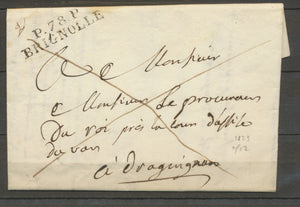 P.78.P.
BRIGNOLLE
A Monsieur
A Monsieur Le procureur
Du roi près la Cour d'assise
du var
à Draguignan
1823